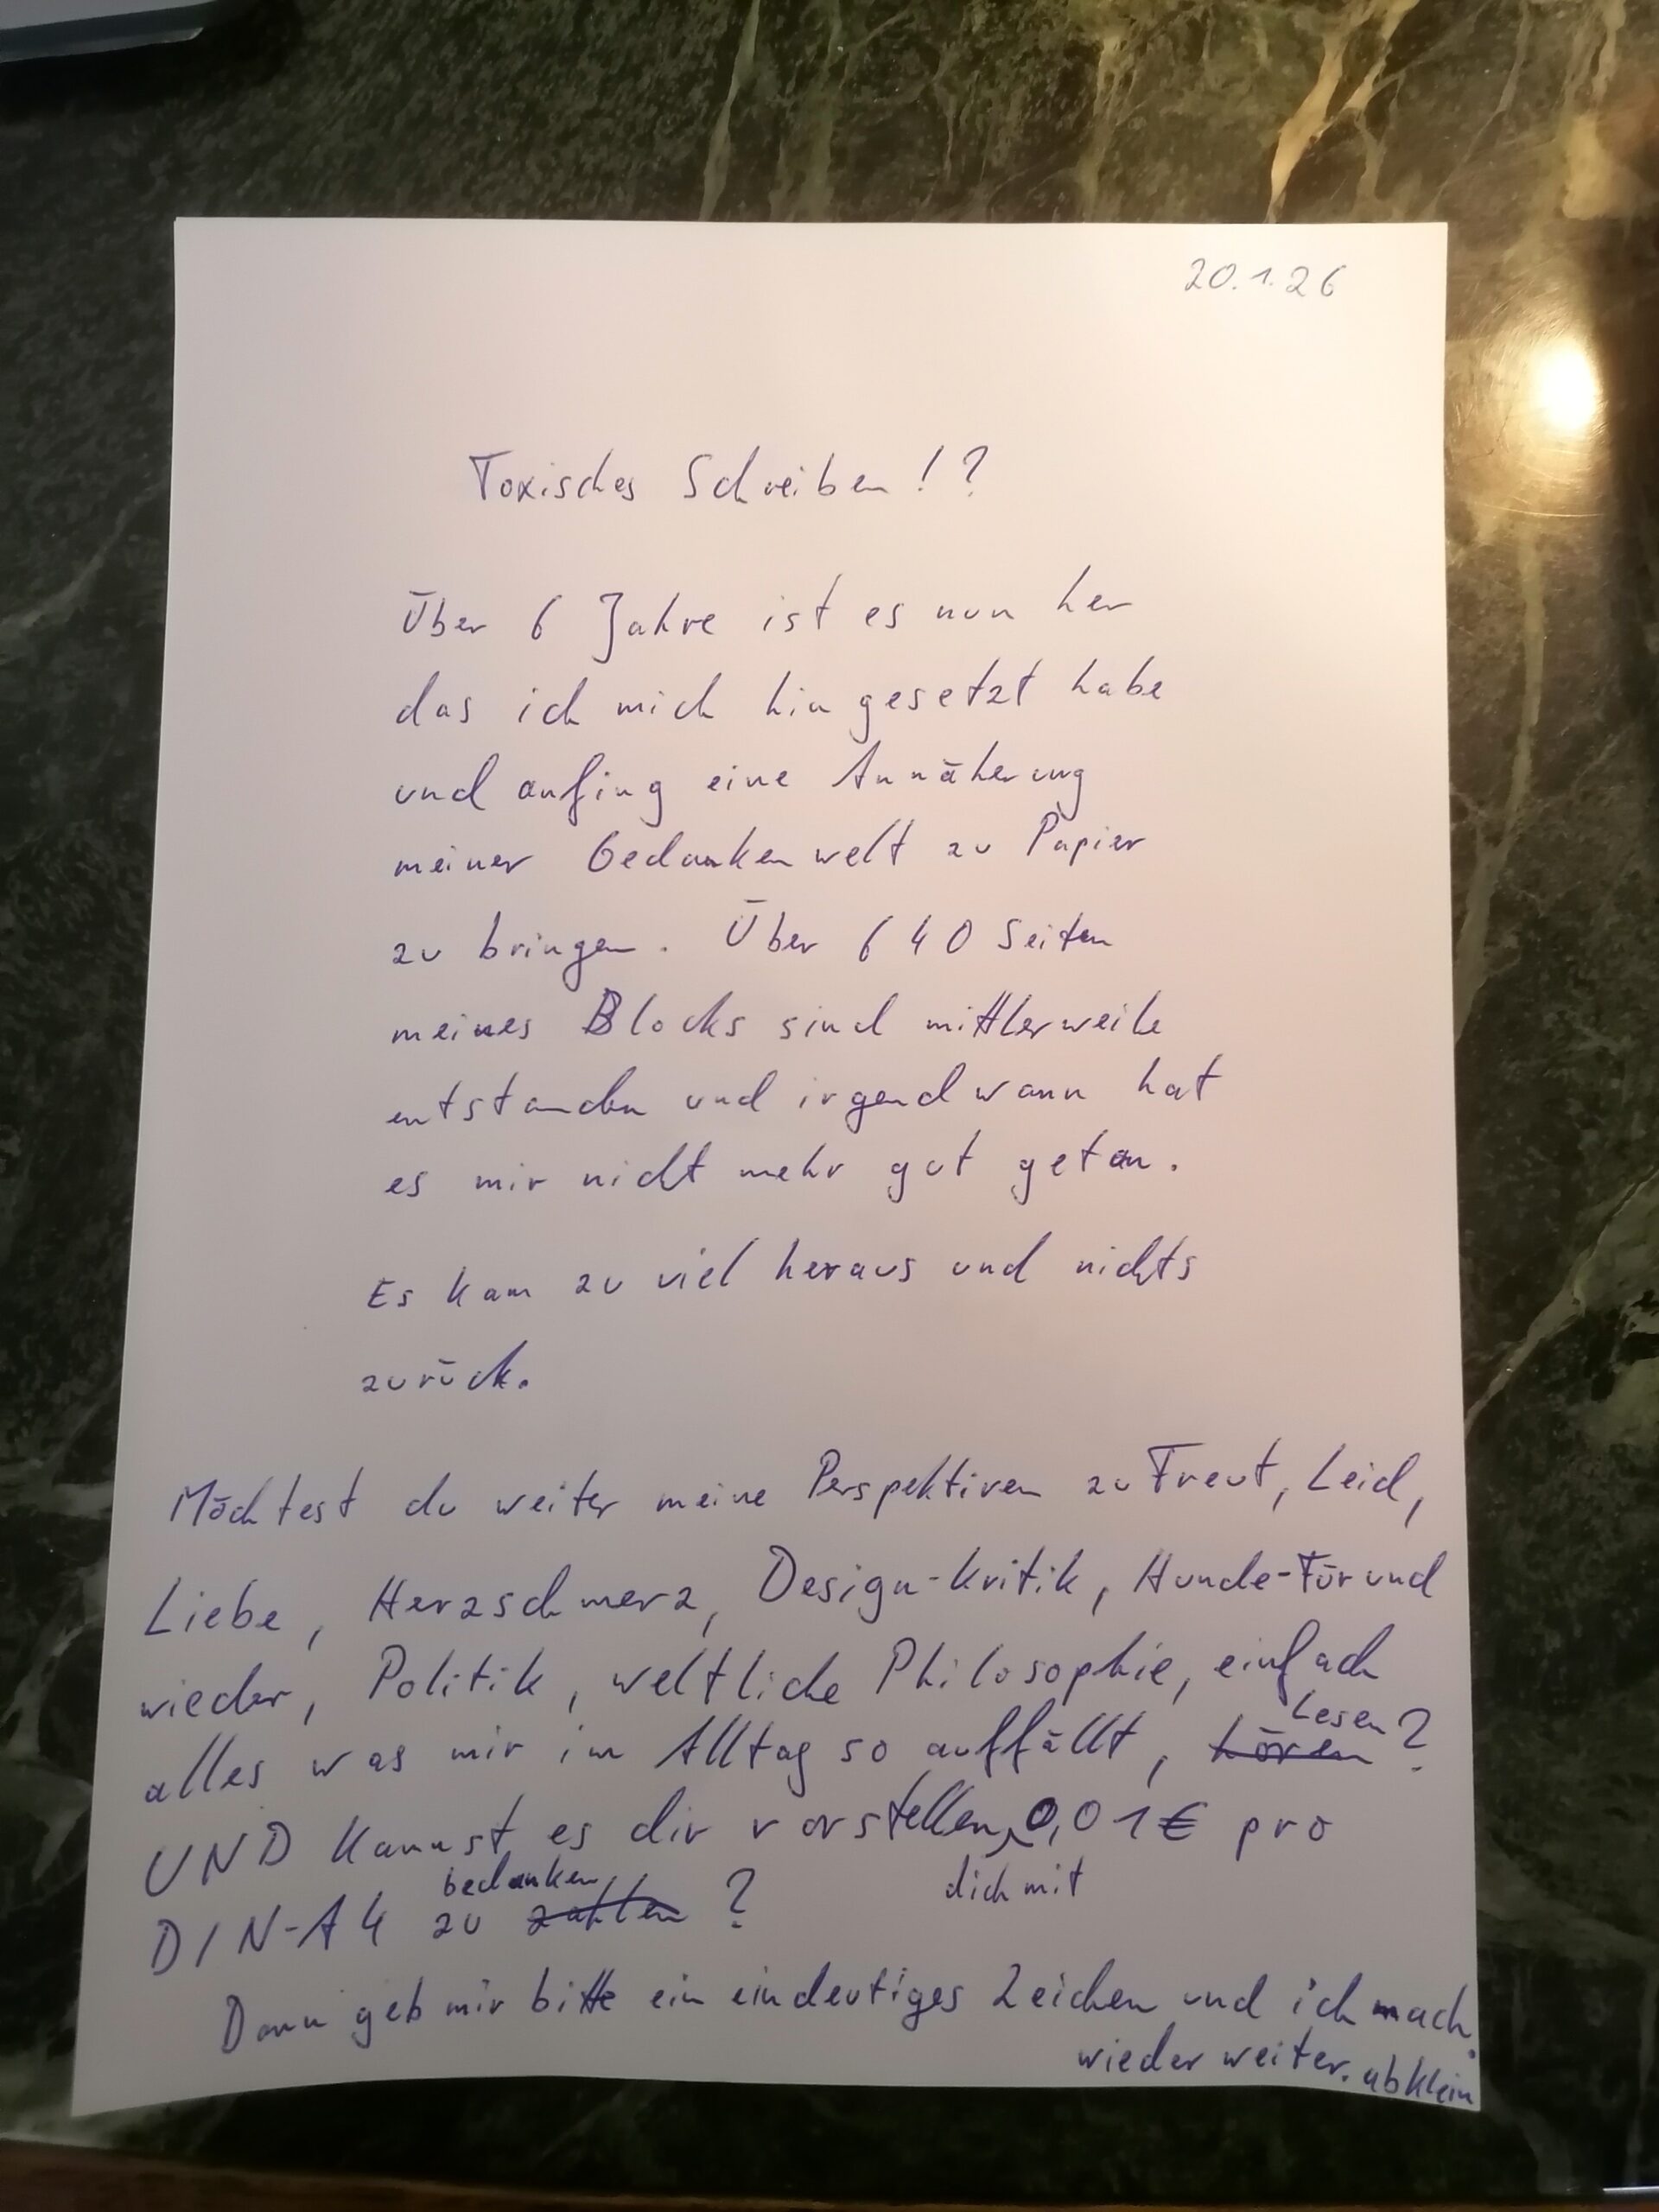 20.1.26
Toxisches Schreiben!?
Über 6 Jahre ist es nun her
das ich mich hin gesetzt habe
und anfing eine Annäherung
meiner Gedankenwelt zu Papier
zu bringen. Über 640 Seiten
meines Blocks sind mittlerweile
entstanden und irgendwann hat
es mir nicht mehr gut getan.
Es kam zu viel heraus und nichts
zurück.
Möchtest du weiter meine Perspektiven zu Freut, Leid,
Liebe, Herzschmerz, Design-Kritik, Hunde-Für und
wieder, Politik, weltliche Philosophie, einfach
Lesen
alles was mir im Alltag so auffällt, hören?
UND kannst es dir vorstellen, 0,01€ pro
bedanken dich mit
DIN-A4 zu zahlen?
Dann geb mir bitte ein eindeutiges Zeichen und ich mach
wieder weiter. abklein